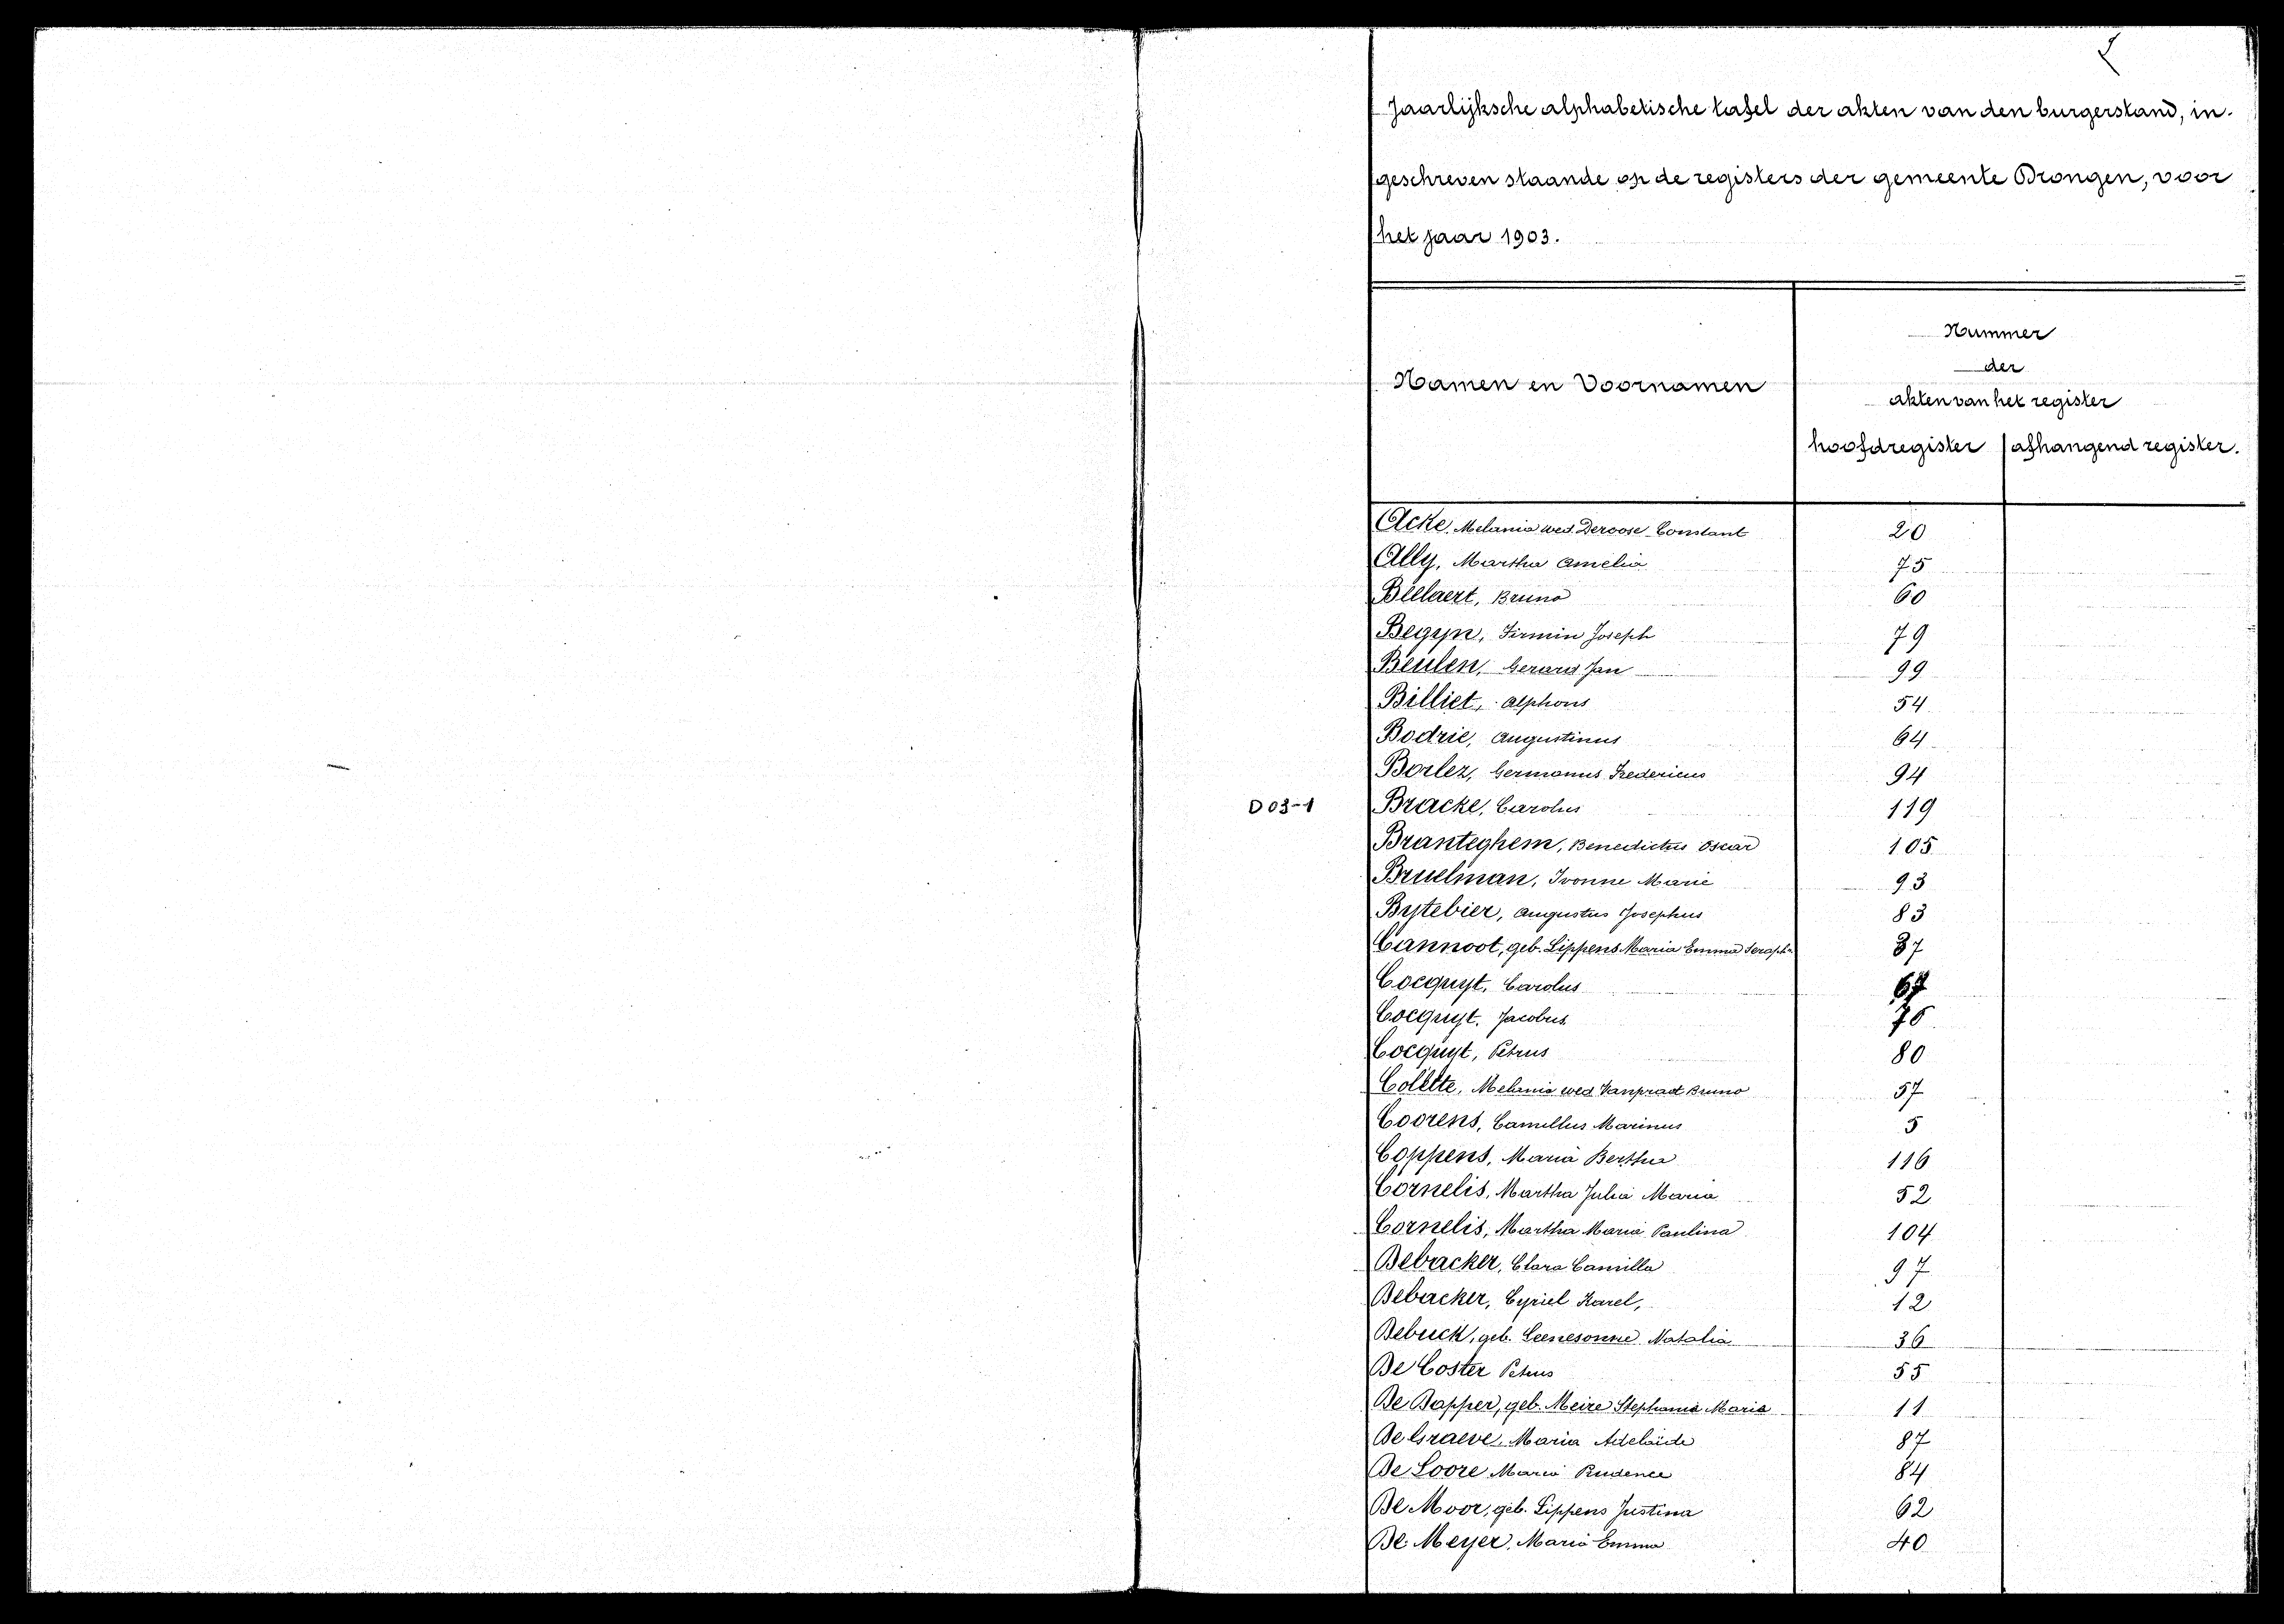 Jaarlijksche alphabetische tafel der akten van den burgerstand, in-
geschreven staande op de registers der gemeente Drongen, voor
het jaar 1903.
Namen en Voornamen
Nummer
der
akten van het register
hoofdregister afhangend register.
Acke, Melania wed. Deroose Constant 20
Ally, Martha Amelia 75
Bellaert, Bruno 60
Begyn, Firmin Joseph 79
Beulen, Gerard Jan 99
Billiet, Alphons 54
Bodrie, Augustinus 64
Borlez, Germanus Fredericus 94
D03-1 Bracke, Carolus 119
Branteghem, Benedictus Oscar 105
Bruelman, Ivonne Marie 93
Bytebier, Augustus Josephus 83
Cannoot, geb. Lippens Maria Emma Seraph 37
Cocquyt, Carolus
Cocquyt, Jacobus
Cocquyt, Petrus 80
Colette, Melania wed Vanpraet Bruno 57
Coorens, Camillus Marinus 5
Coppens, Maria Bertha 116
Cornelis, Martha Julia Maria 52
Cornelis, Martha Maria Paulina 104
Debacker, Clara Camilla 97
Debacker, Cyriel Karel, 12
Debuck, geb. Leenesonne Natalia 36
De Coster Petrus 55
De Dapper, geb. Meire Stephania Maria 11
De Graeve, Maria Adelaïde 87
De Loore Maria Prudence 84
De Moor, geb. Lippens Justina 62
De Meyer, Maria Emma 40